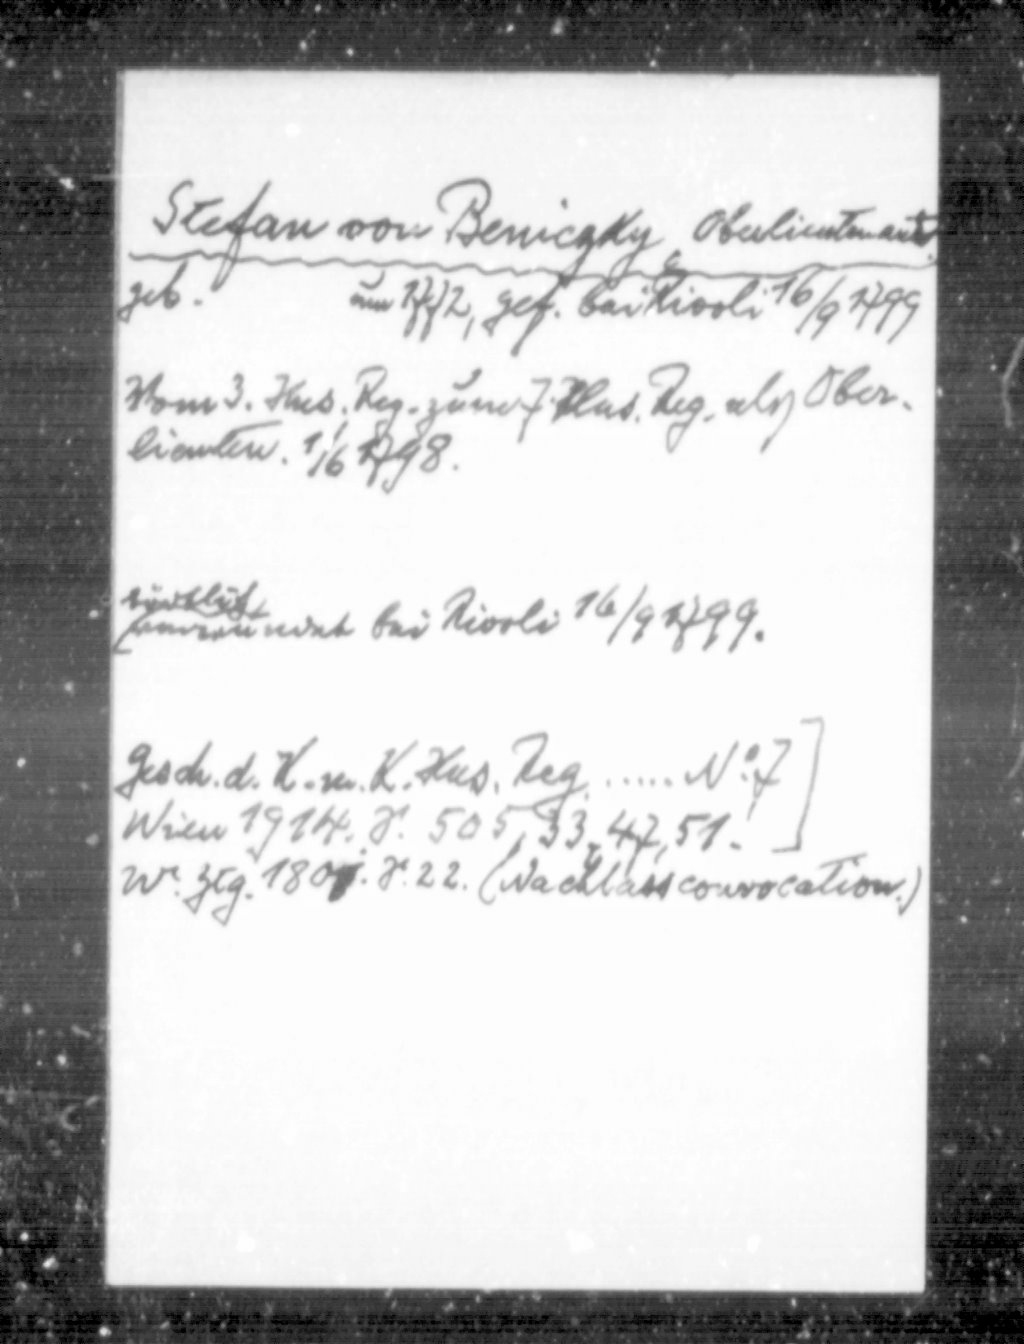 Stefan von Beniczky, Oberlieutenant.
geb. um 1772, gef. bei Rivoli 16/9 1799
Vom 3. Hus. Reg. zum 7. Hus. Reg. als Ober-
lieuten. 1/6 1798.
bei Rivoli 16/9 1799.
Gesch. d. K. u. K. Hus. Reg. ..... No. 7
Wien 1914. S. 505, 33, 47, 51.
Wr. Ztg. S. 22. (Nachlassconvocation.)